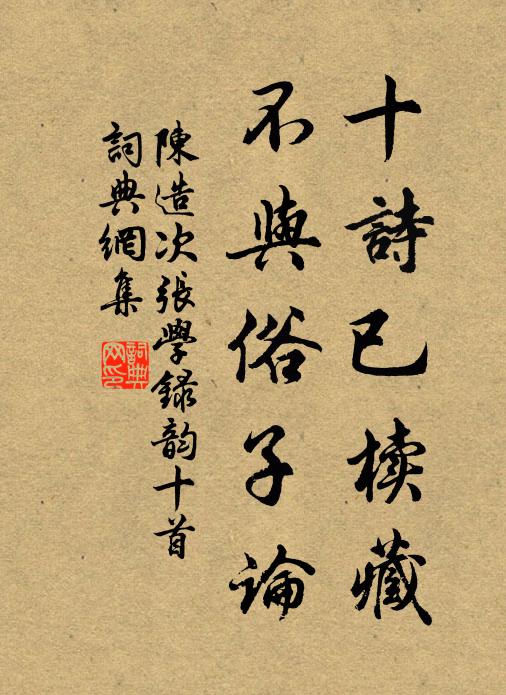 十詩已櫝藏
不與俗子論
陳造次張學録韵十首
詞典網集
詞典網印